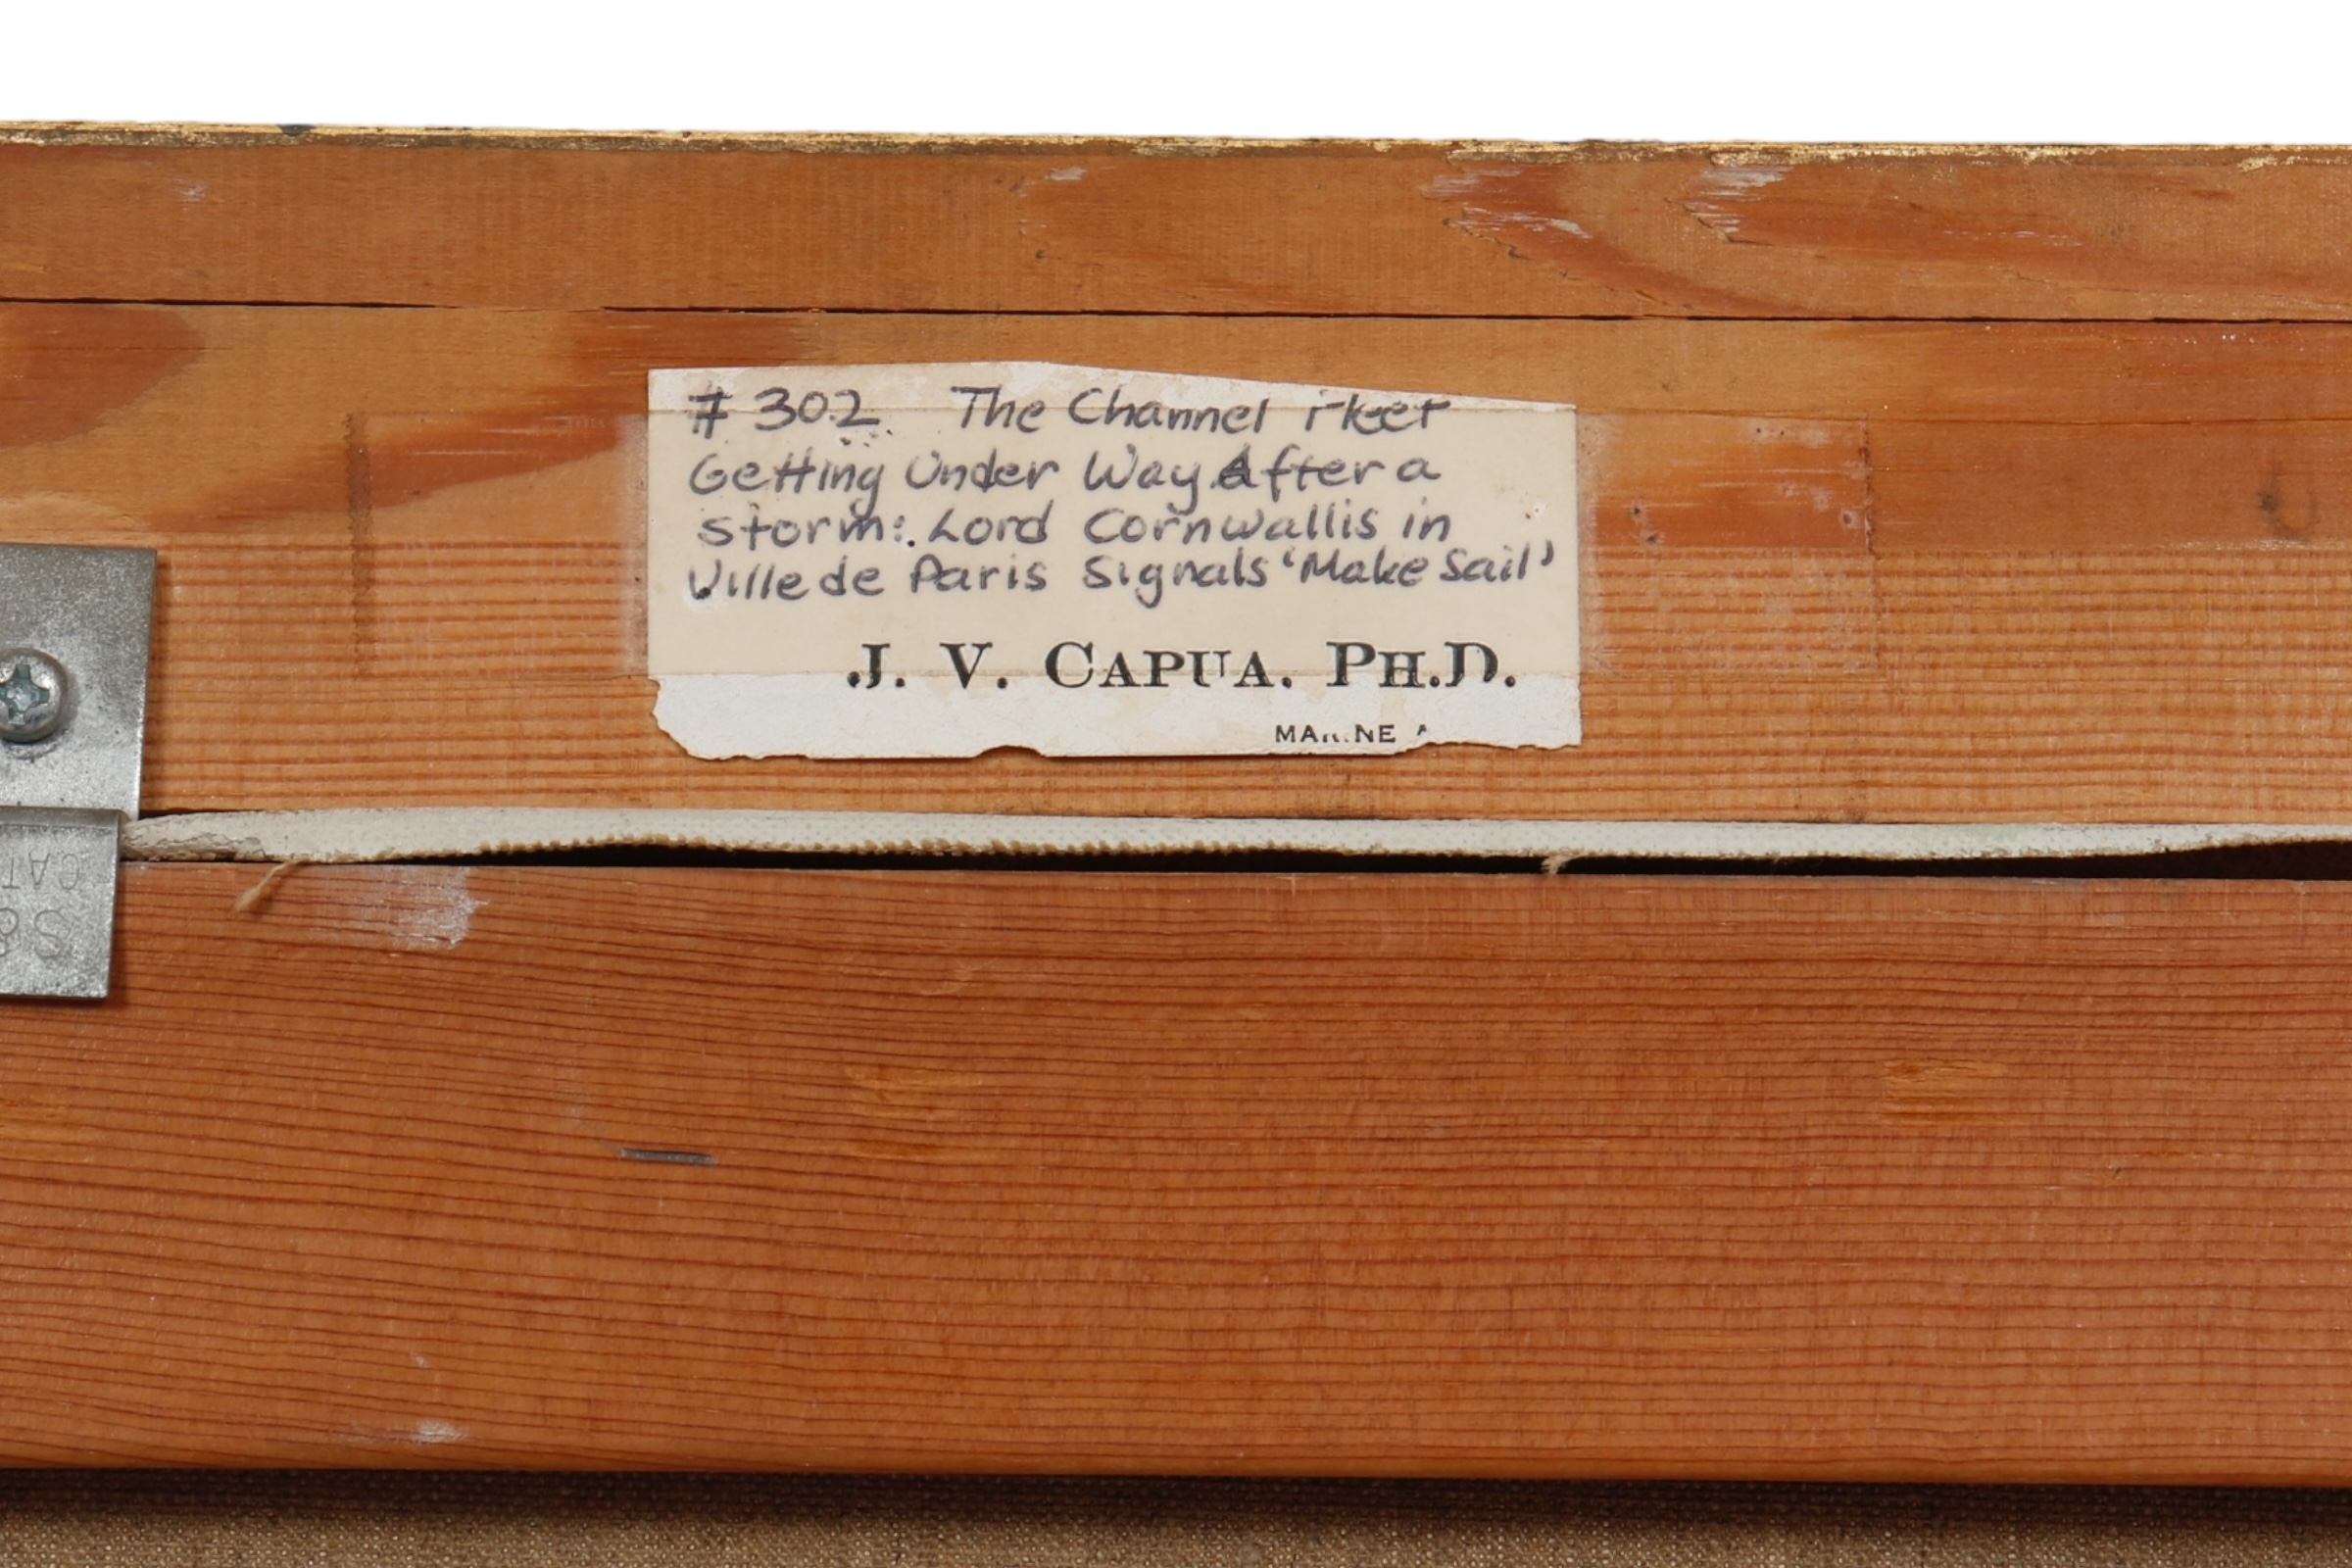 # 302 The Channel Fleet
Getting Under Way After a
Storm: Lord Cornwallis in
Ville de Paris Signals 'Make Sail'
J. V. CAPUA. PH.D.
MARINE
CAT
S&